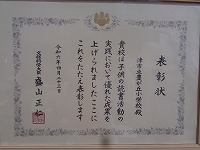 表彰状
津市立豊が丘小学校殿
貴校は子供の読書活動の
実践において優れた成果を
上げられましたここに
これをたたえ表彰します
令和六年四月二十三日
文部科学大臣 盛山正仁